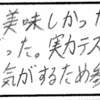 美味しかっ
った。実力テス
気がするため